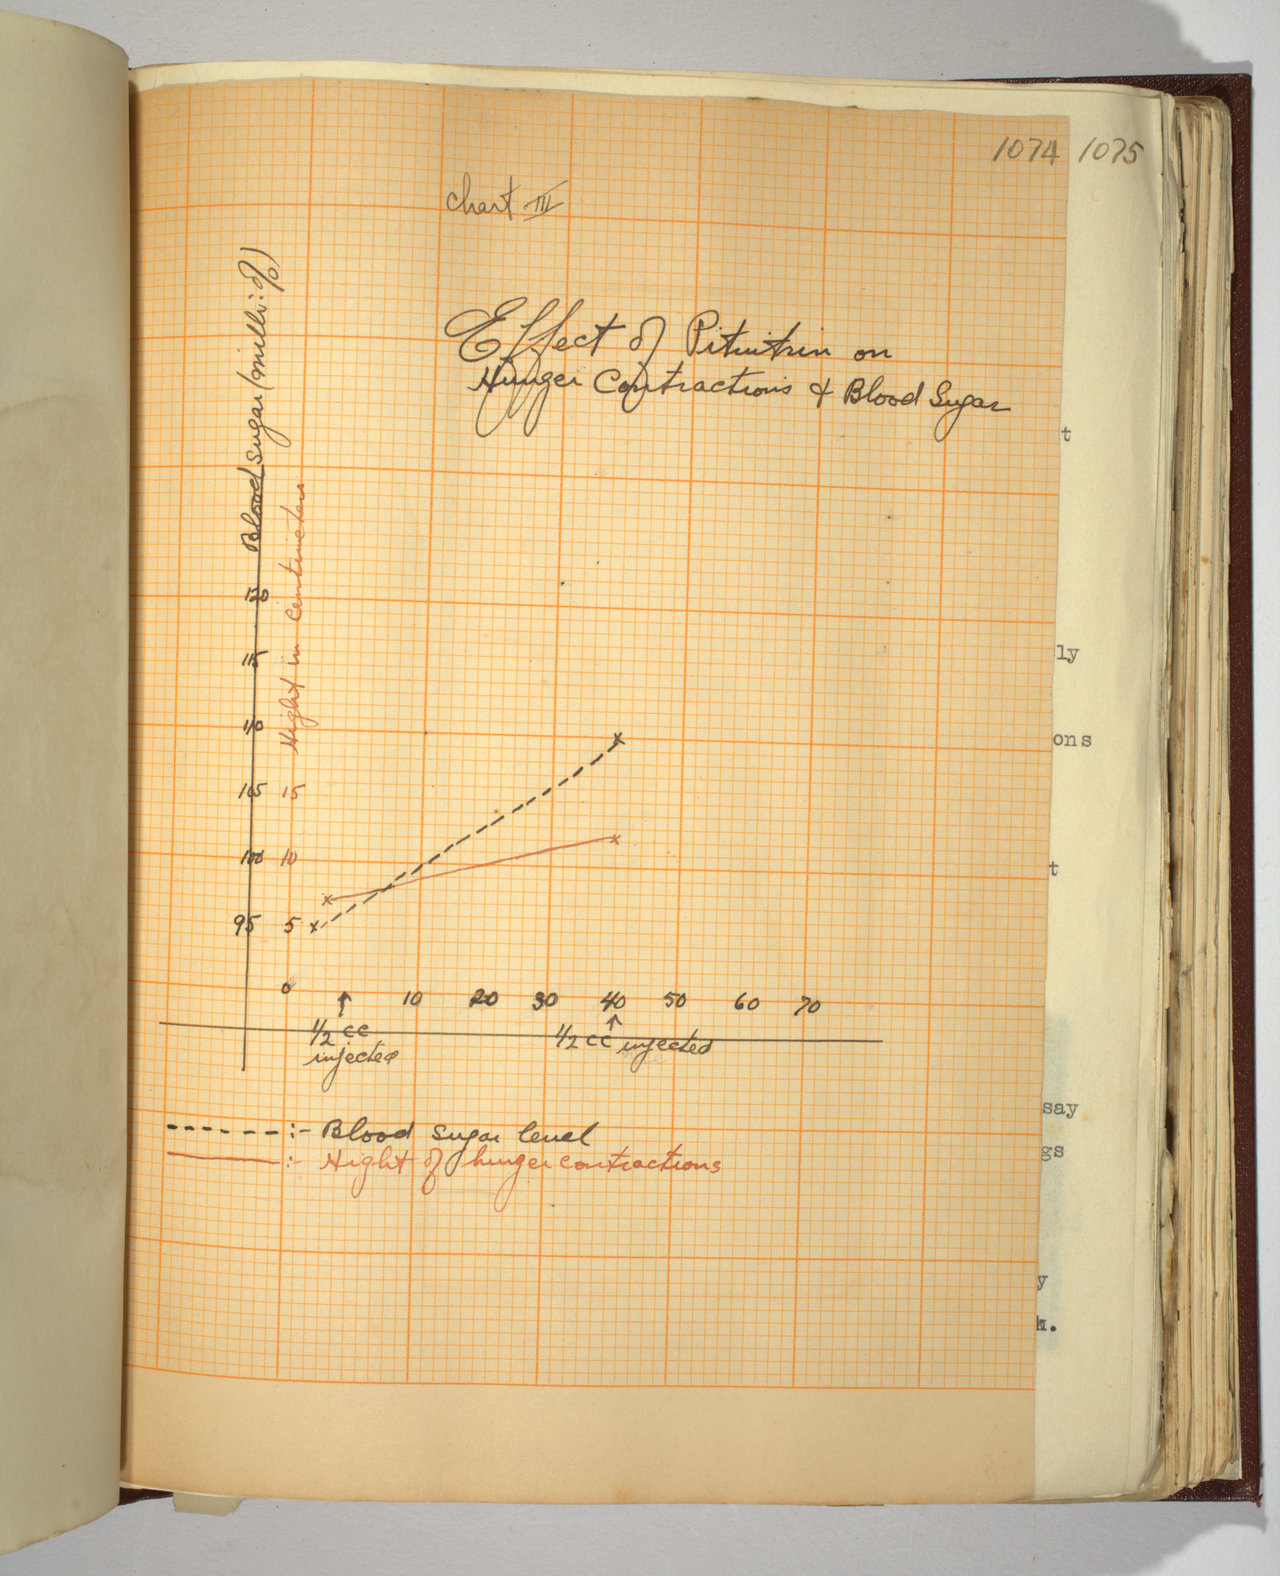 1074 1075
Chart III
Effect of Pituitrin on
Hunger Contractions & Blood Sugar
Blood Sugar (milli: %)
Hight in Centimeters
120
115
110
105 15
100 10
95 5
0 10 20 30 40 50 60 70
1/2 cc
injected
1/2 cc injected
:- Blood sugar level
:- Hight of hunger contractions
t
ly
ons
t
say
gs
y
k.